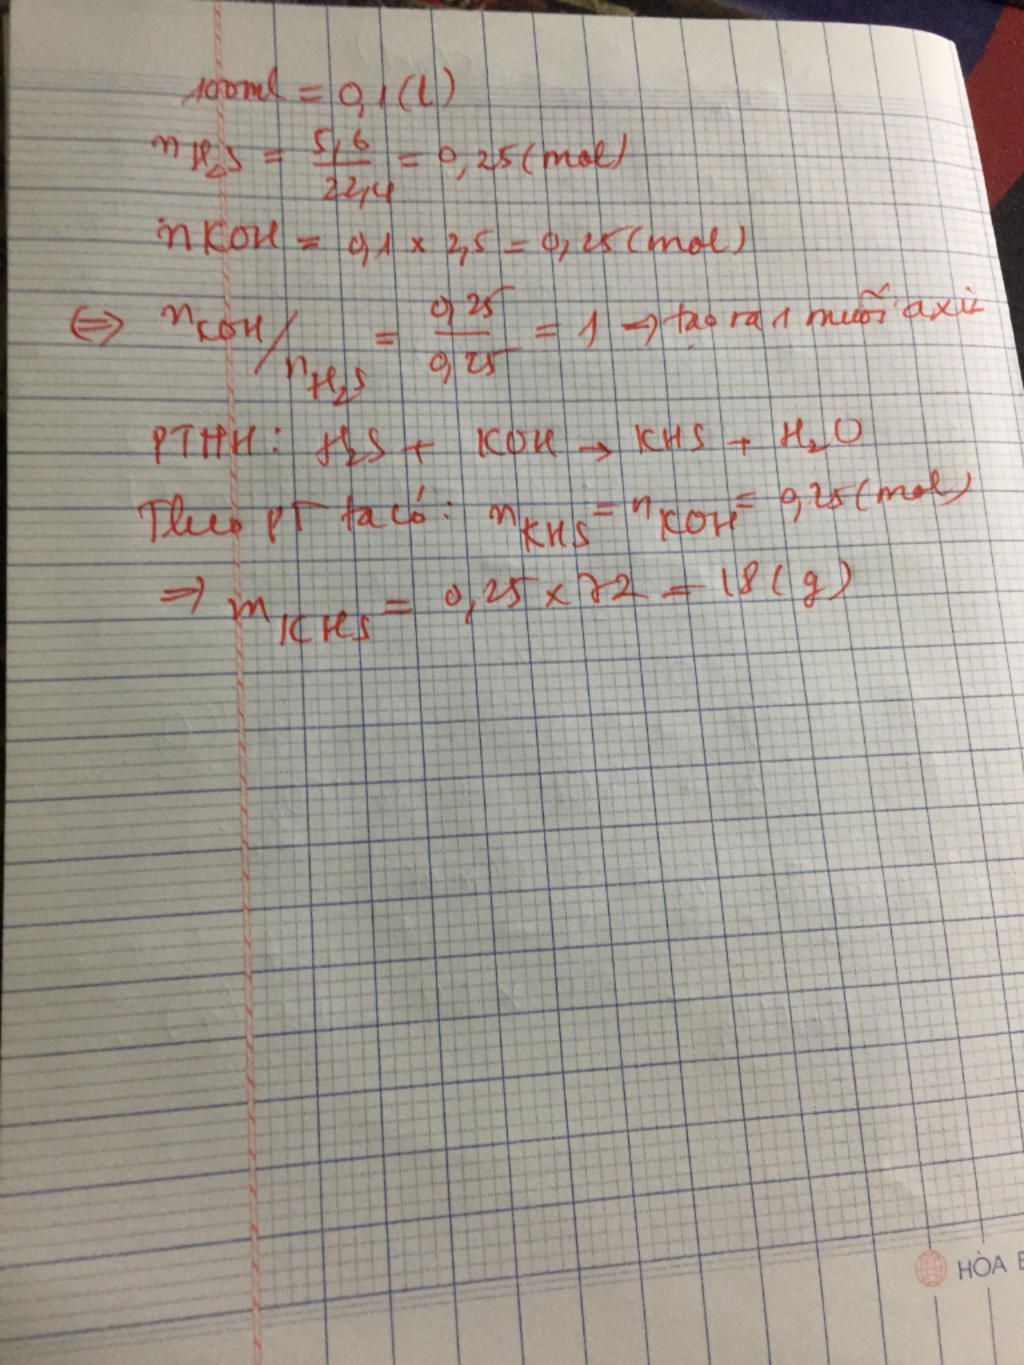 100ml = 0,1 (l)
nH₂S = 5,6/22,4 = 0,25 (mol)
nKOH = 0,1 × 2,5 = 0,25 (mol)
⇔ nKOH/nH₂S = 0,25/0,25 = 1 → tạo ra 1 muối axit
PTHH: H₂S + KOH → KHS + H₂O
Theo PT ta có: nKHS = nKOH = 0,25 (mol)
⇒ mKHS = 0,25 × 72 = 18 (g)
HÒA